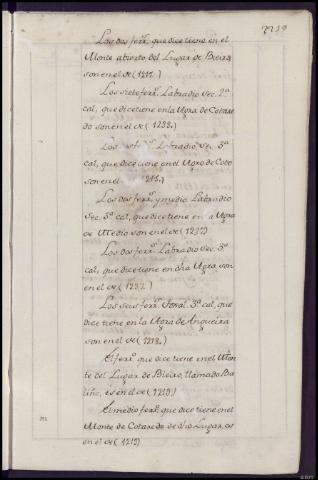 Los dos ferr.s que dice tiene en el
Monte abierto del Lugar de Bieira
son en el de (1211.)
Los siete ferr.s Labradio Sec. 2ª
cal, que dice tiene en la Agra de Cotare
do son en el de (1233.)
Los ferr.s Labradio Sec. 3ª
cal, que dice tiene en el Agro de Coto
son en el 1216.)
Los dos ferr.s y medio Labradio
Sec. 3ª cal, que dice tiene en la Agra
de Medio son en el de (1232)
Los dos ferr.s Labradio Sec. 3ª
cal, que dice tiene en dha Agra, son
en el de (1232.)
Los seis ferr.s 3ª cal, que
dice tiene en la Agra de Angueira
son en el de (1218.)
El ferr.º que dice tiene en el Mon
te del Lugar de Bieiro, llamado Ba
liño, es en el de (1219)
El medio ferr.º que dice tiene en el
Monte de Cotaredo de dho Lugar, es
en el de (1219)